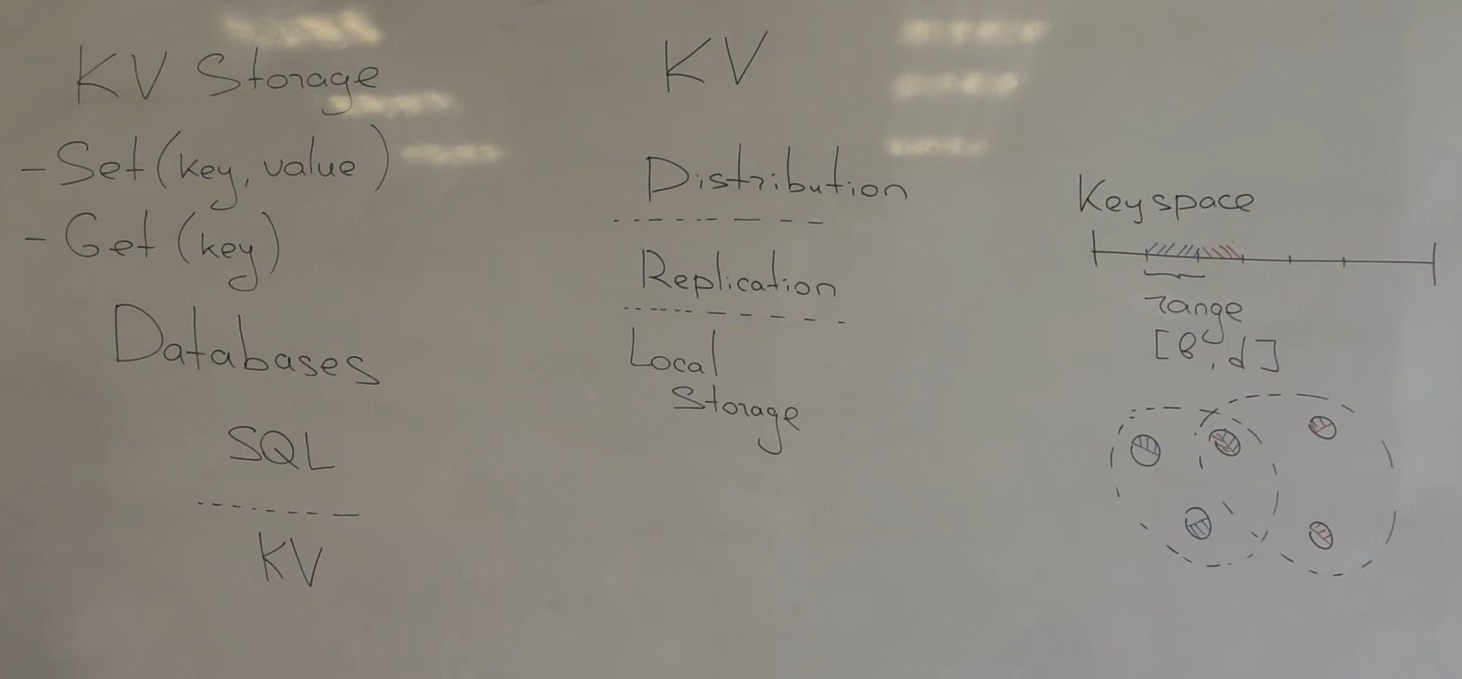 KV Storage
- Set (key, value)
- Get (key)
Databases
SQL
KV
KV
Distribution
Replication
Local
Storage
Keyspace
range
[b, d]